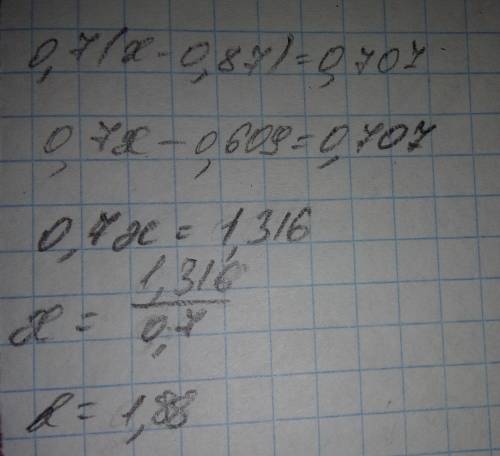 0,7(x-0,87)=0,707
0,7x-0,609=0,707
0,7x=1,316
x=1,316/0,7
x=1,88